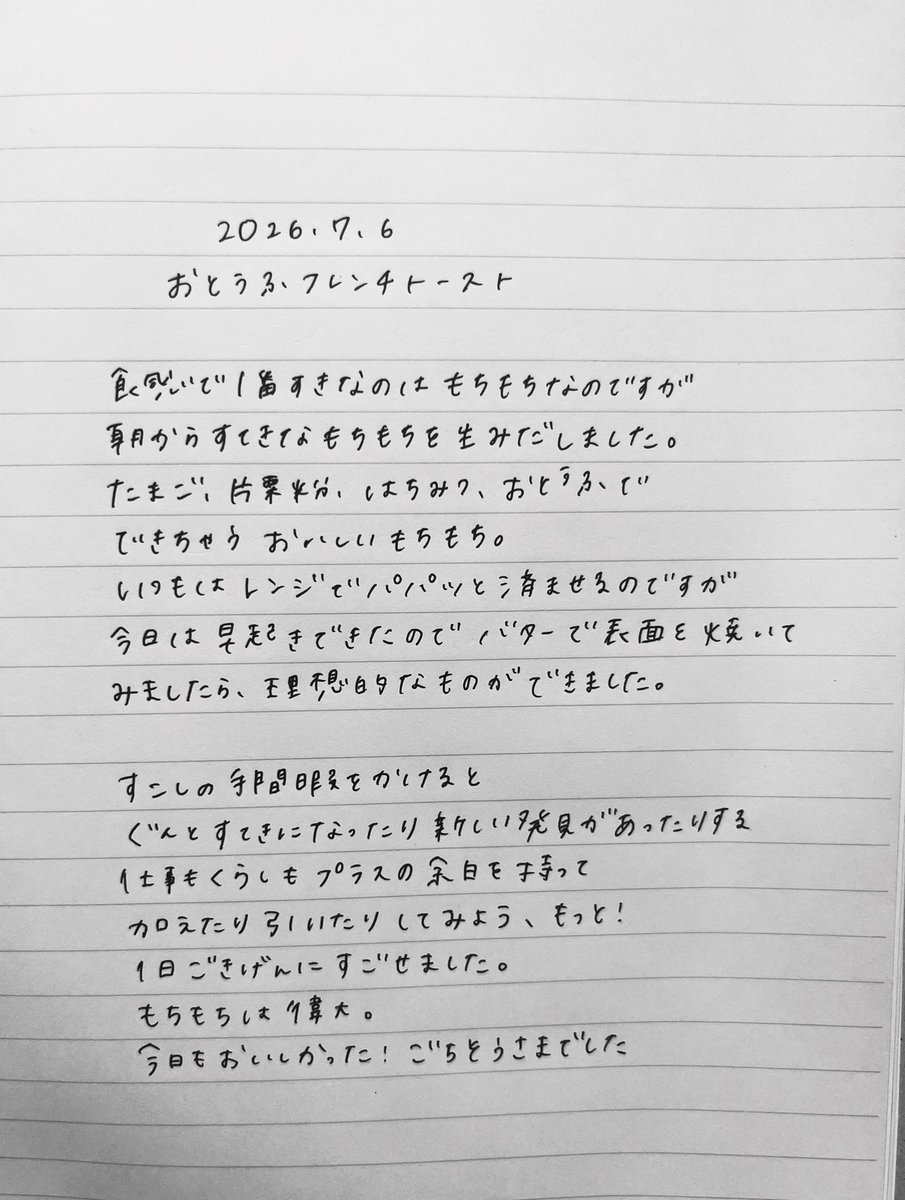 2026.7.6
おとうふフレンチトースト
食感で1番すきなのは もちもちなのですが
朝からすてきなもちもちを生みだしました。
たまご、片栗粉、はちみつ、おとうふで
できちゃう おいしいもちもち。
いつもは レンジでパパッと済ませるのですが
今日は早起きできたので バターで表面を焼いて
みましたら、理想的なものができました。
すこしの手間暇をかけると
ぐんとすてきになったり新しい発見があったりする
仕事もくらしもプラスの余白を持って
加えたり引いたりしてみよう、もっと!
1日ごきげんにすごせました。
もちもちは偉大。
今日もおいしかった!ごちそうさまでした